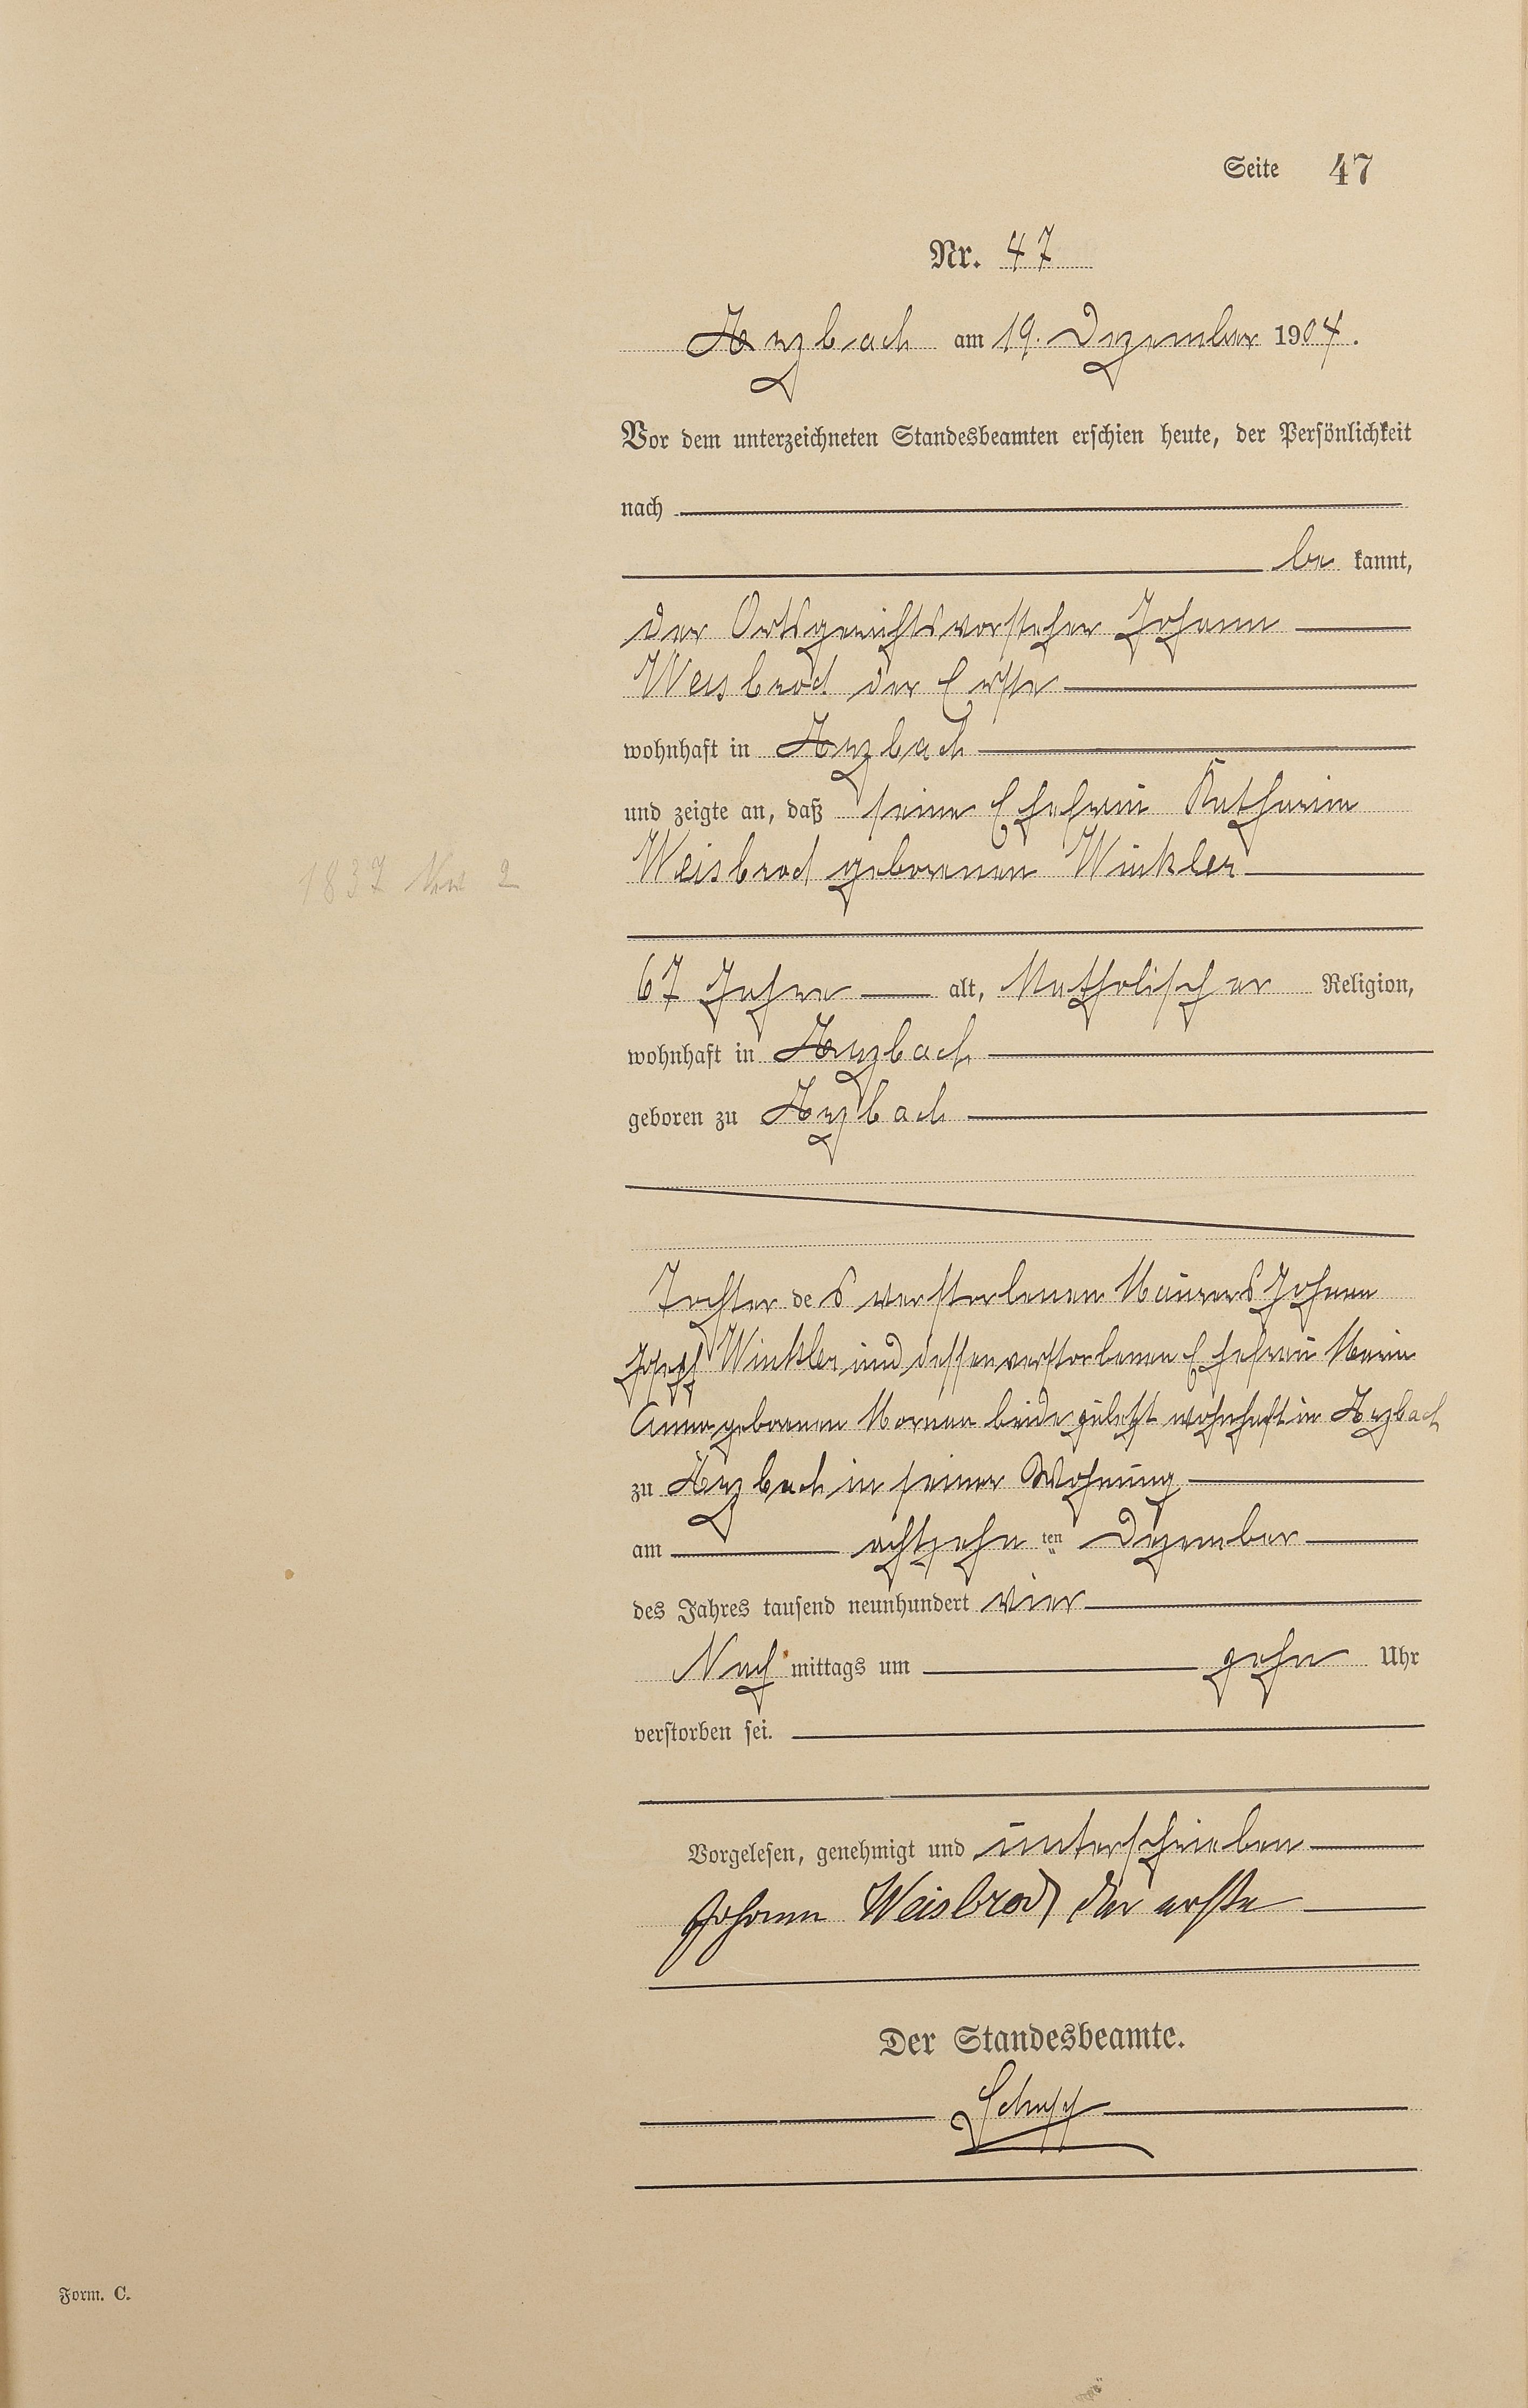 Seite 47
Nr. 47
Arzbach am 19. Dezember 1904.
Vor dem unterzeichneten Standesbeamten erschien heute, der Persönlichkeit
nach
be kannt,
der Ortsgerichtsvorsteher Johann
Weisbrod der Erste
wohnhaft in Arzbach
und zeigte an, daß seine Ehefrau Katharina
1837 Nro 2
Weisbrod geborenen Winkler
67 Jahre alt, Katholischer Religion,
wohnhaft in Arzbach
geboren zu Arzbach
Tochter des verstorbenen Maurers Johann
Joseph Winkler und dessen verstorbenen Ehefrau Maria
Anna geborenen beide zuletzt wohnhaft in Arzbach
zu Arzbach in seiner Wohnung
am achtzehn ten Dezember
des Jahres tausend neunhundert vier
Nach mittags um zehn Uhr
verstorben sei.
Vorgelesen, genehmigt und unterschrieben
Johann Weisbrod der erste
Der Standesbeamte.
Schupp
Form. C.